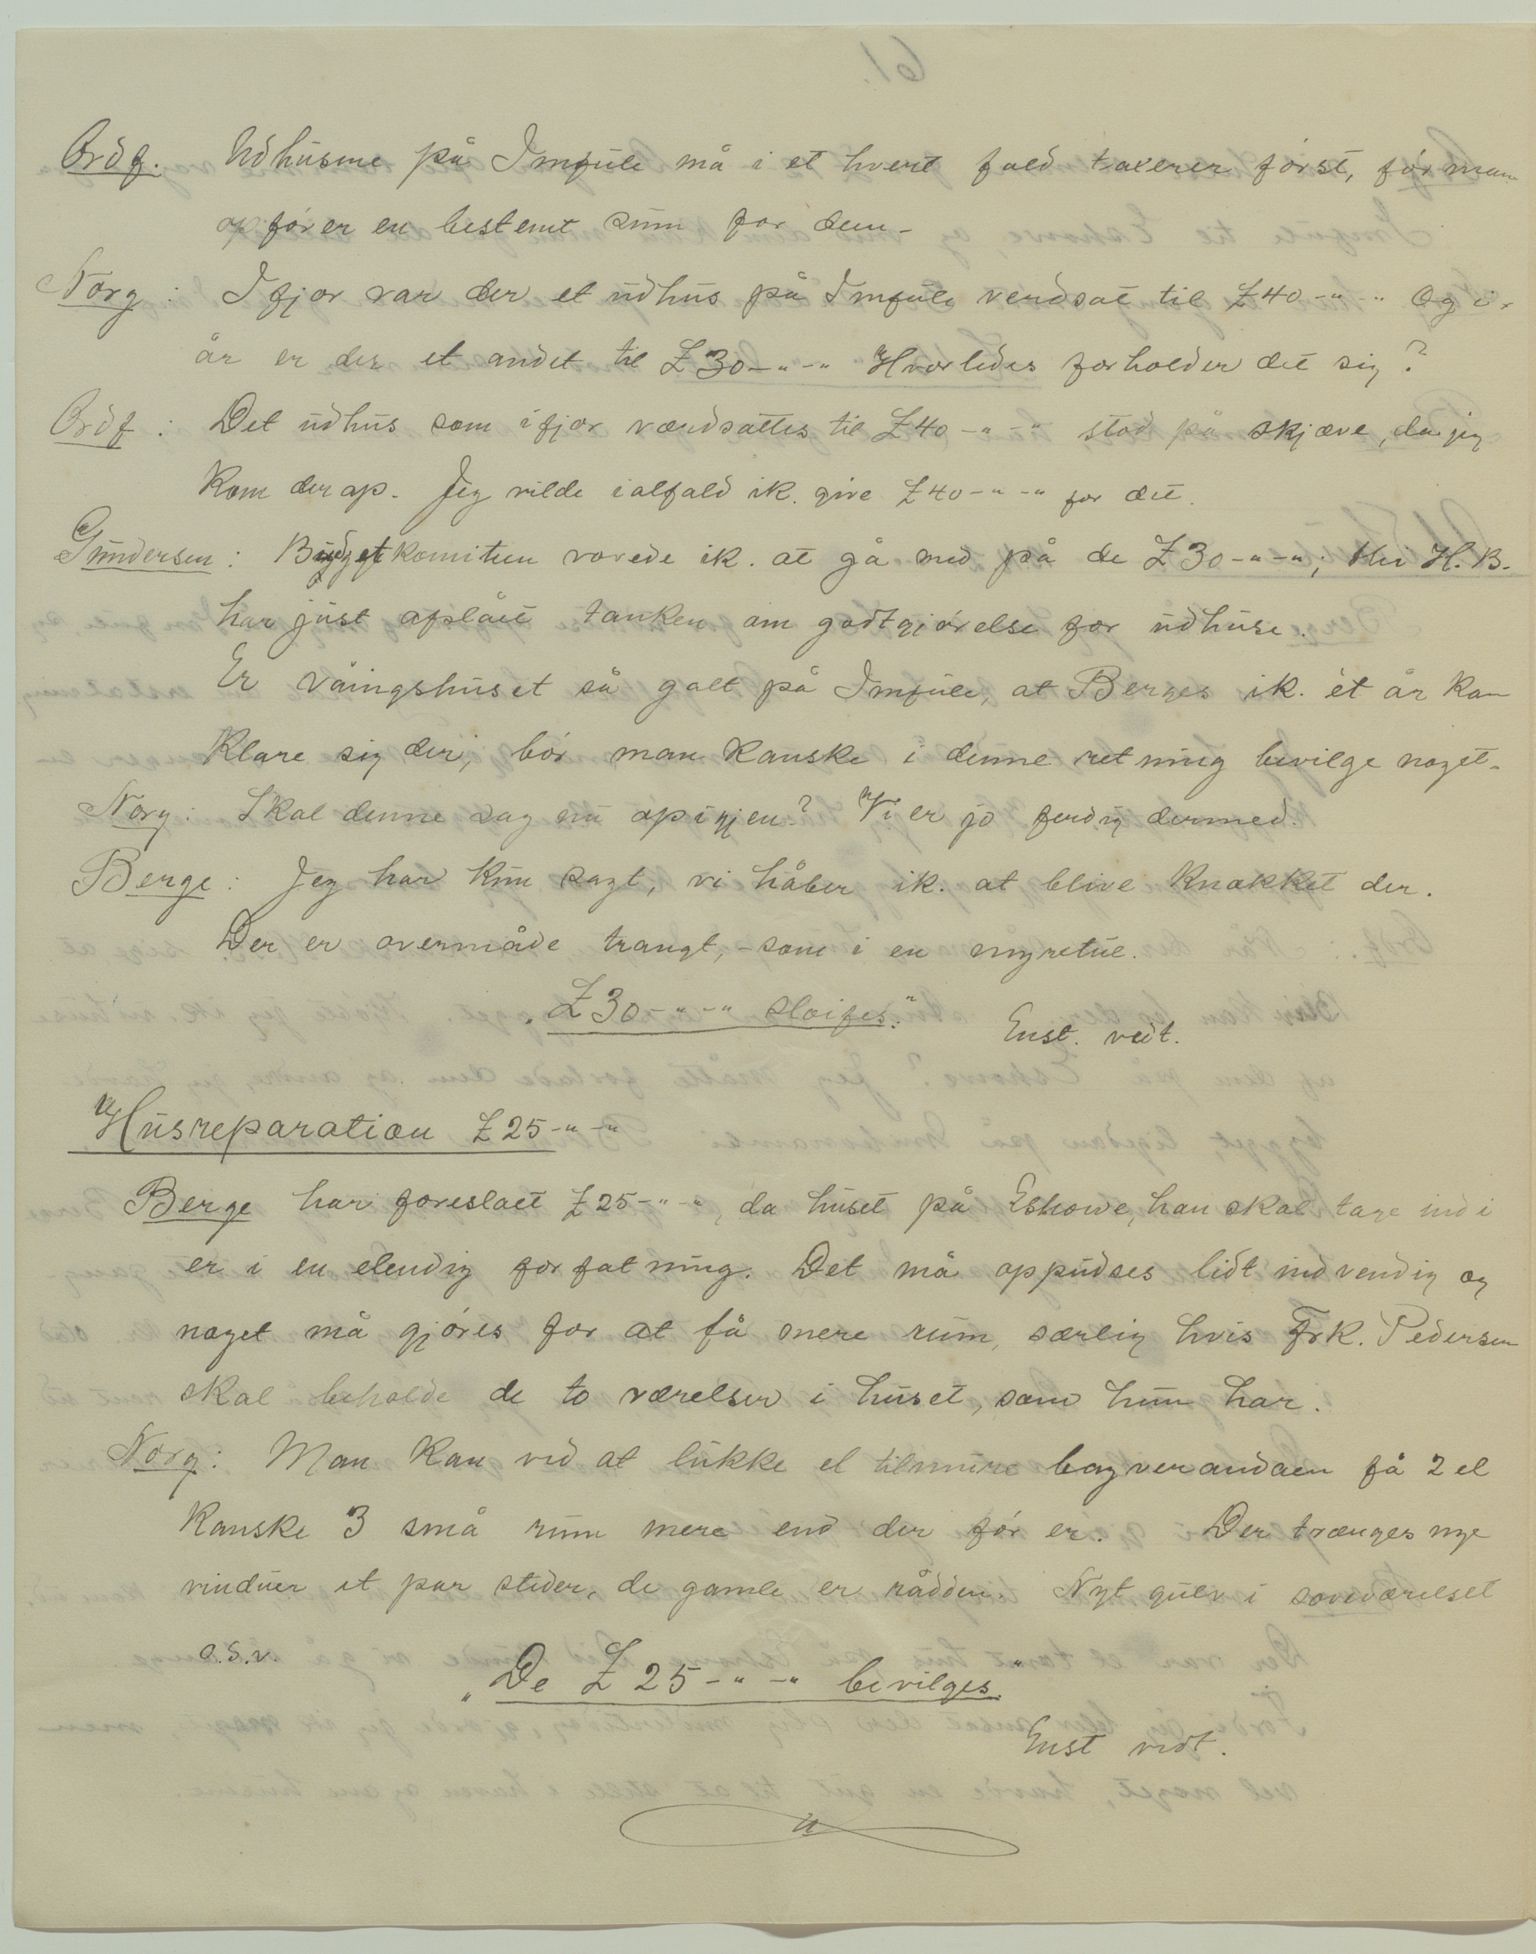 Ordf. Udhusene på Imfule må i et hvert fald taxerer først, før man
opfører en bestemt sum for dem-
Norg : I fjor var der et udhus på Imfule verdsat til £40-"-" Og i
år er der et andet til £30-"-" Hvorledes forholder det sig?
Ordf : Det udhus som ifjor værdsattes til £40-"-" stod på skjæve, da jeg
kom derop. Jeg vilde ialfald ik. give £40-"-" for det.
Gundersen : Budgetkomiteen vovede ik. at gå med på de £30-"-"; thi H.B.
har just afslået tanken om godtgjørelse for udhuse.
Er våingshuset så galt på Imfule, at Berges ik. ét år kan
klare sig der, bør man kanske i denne retning bevilge noget.
Norg : Skal denne sag nu op igjen? Vi er jo ferdig dermed.
Berge : Jeg har kun sagt, vi håber ik. at blive knækket der.
Der er overmåde trangt, - som i en myretue.
"£30-"-" sløifes."
Enst. vedt.
Husreparation £25-"-"
Berge har foreslaaet £25-"-", da huset på Eshowe, han skal tage ind i
er i en elendig forfatning. Det må oppudses lidt indvendig og
noget må gjøres for at få mere rum, særlig hvis Frk. Pedersen
skal beholde de to værelser i huset, som hun har.
Norg : Man kan ved at lukke el tilmure bagverandaen få 2 el
kanske 3 små rum mere end der før er. Der trænges nye
vinduer et par steder, de gamle er rådden. Nyt gulv i soveværelset
o.s.v.
"De £25-"-" bevilges."
Enst vedt.